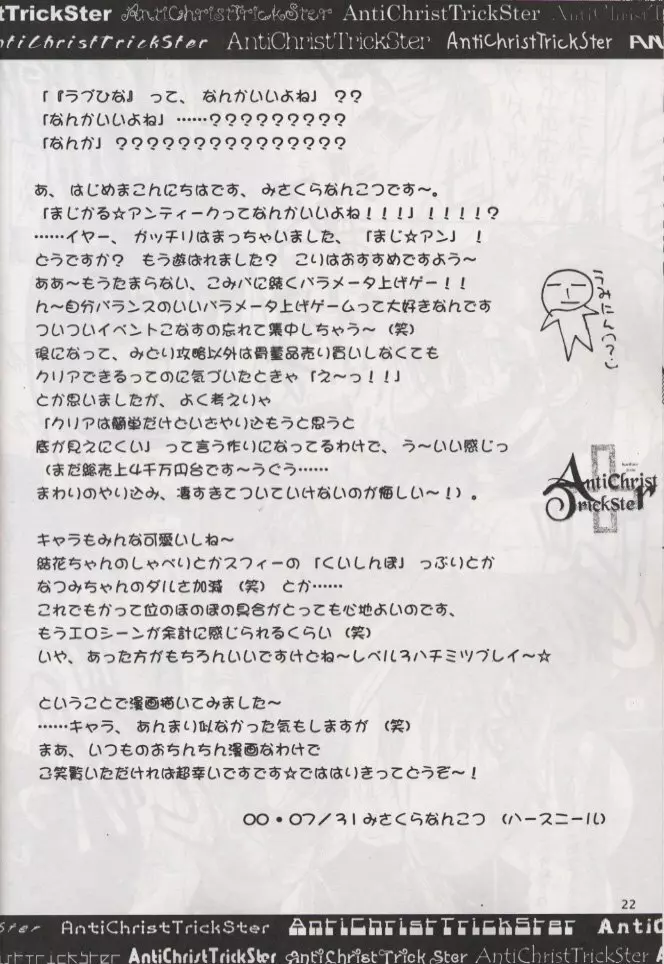 tTrickSter AntiChristTrickSter AntiChristTrickSter
ntiChristTrickSter AntiChristTrickSter AntiChristTrickSter AN
「『ラブひな』 って、 なんかいいよね」 ??
「なんかいいよね」 ……?????????
「なんか」 ???????????????
あ、 はじめまこんにちはです、 みさくらなんこつです～。
「まじかる☆アンティークってなんかいいよね!!!」 !!!!?
……イヤー、 ガッチリはまっちゃいました、 「まじ☆アン」 !
どうですか? もう遊ばれました? こりはおすすめですよう～
ああ～もうたまらない、 こみパに続くパラメータ上げゲー!!
ん～自分バランスのいいパラメータ上げゲームって大好きなんです
ついついイベントこなすの忘れて集中しちゃう～ (笑)
後になって、 みどり攻略以外は骨董品売り買いしなくても
クリアできるってのに気づいたときゃ 「え～っ!!」
とか思いましたが、 よく考えりゃ
「クリアは簡単だけどいざやり込もうと思うと
底が見えにくい」 って言う作りになってるわけで、 う～いい感じっ
(まだ総売上4千万円台です～うぐぅ……
まわりのやり込み、 凄すぎてついていけないのが悔しい～!) 。
キャラもみんな可愛いしね～
結花ちゃんのしゃべりとかスフィーの 「くいしんぼ」 っぷりとか
なつみちゃんのダルさ加減 (笑) とか……
これでもかって位のほのぼの具合がとっても心地よいのです、
もうエロシーンが余計に感じられるくらい (笑)
いや、 あった方がもちろんいいですけどね～レベル3ハチミツプレイ～☆
ということで漫画描いてみました～
……キャラ、 あんまり似なかった気もしますが (笑)
まあ、 いつものおちんちん漫画なわけで
ご笑覧いただければ超幸いですです☆でははりきってどうぞ～!
00・07/31みさくらなんこつ (ハースニール)
うみにん(?)
AntiChrist
TrickSter
22
AntiChristTrickSter AntiChristTrickSter AntiC
AntiChristTrickSter AntiChristTrickSter AntiChristTrickSter